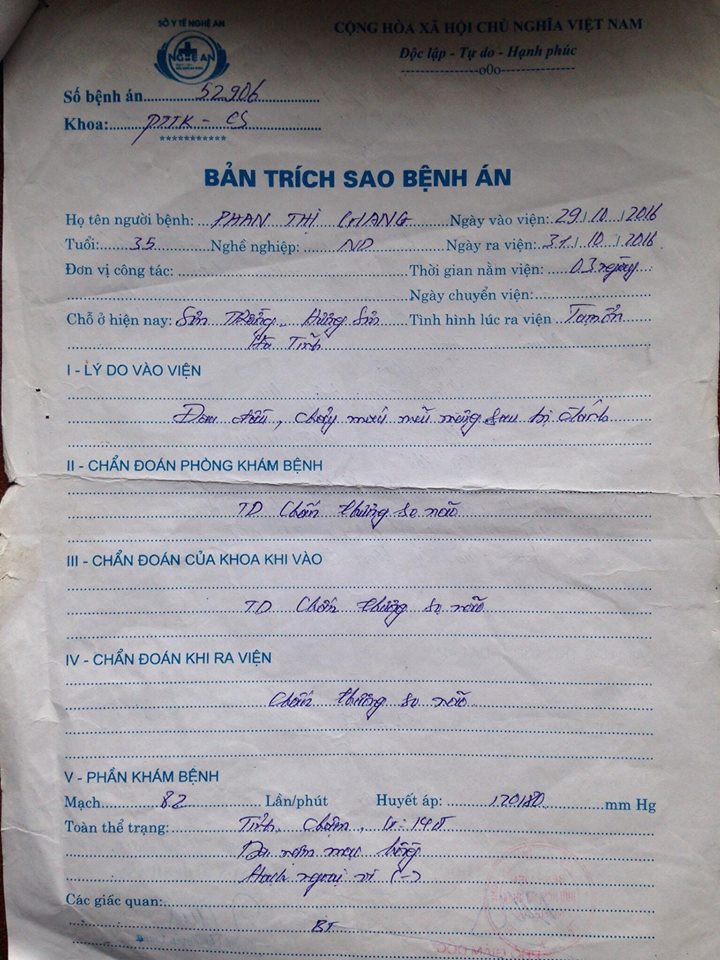 SỞ Y TẾ NGHỆ AN
NGHỆ AN
CỘNG HÒA XÃ HỘI CHỦ NGHĨA VIỆT NAM
Độc lập - Tự do - Hạnh phúc
o0o
Số bệnh án 52906
Khoa: PTTK - CS
***********
BẢN TRÍCH SAO BỆNH ÁN
Họ tên người bệnh: PHAN THỊ GIANG Ngày vào viện: 29/10/2016
Tuổi: 35 Nghề nghiệp: ND Ngày ra viện: 31/10/2016
Đơn vị công tác: Thời gian nằm viện: 03 ngày
Ngày chuyển viện:
Chỗ ở hiện nay: Sơn Hương Sơn Tình hình lúc ra viện Tạm ổn
Hà Tĩnh
I - LÝ DO VÀO VIỆN
Đau đầu, chảy máu mũi miệng sau bị đánh
II - CHẨN ĐOÁN PHÒNG KHÁM BỆNH
TD Chấn thương sọ não
III - CHẨN ĐOÁN CỦA KHOA KHI VÀO
TD Chấn thương sọ não
IV - CHẨN ĐOÁN KHI RA VIỆN
Chấn thương sọ não
V - PHẦN KHÁM BỆNH
Mạch 82 Lần/phút Huyết áp: 120/80 mm Hg
Toàn thể trạng: Tỉnh, chậm, G: 14đ
Da niêm mạc hồng
Hạch ngoại vi (-)
Các giác quan:
BT